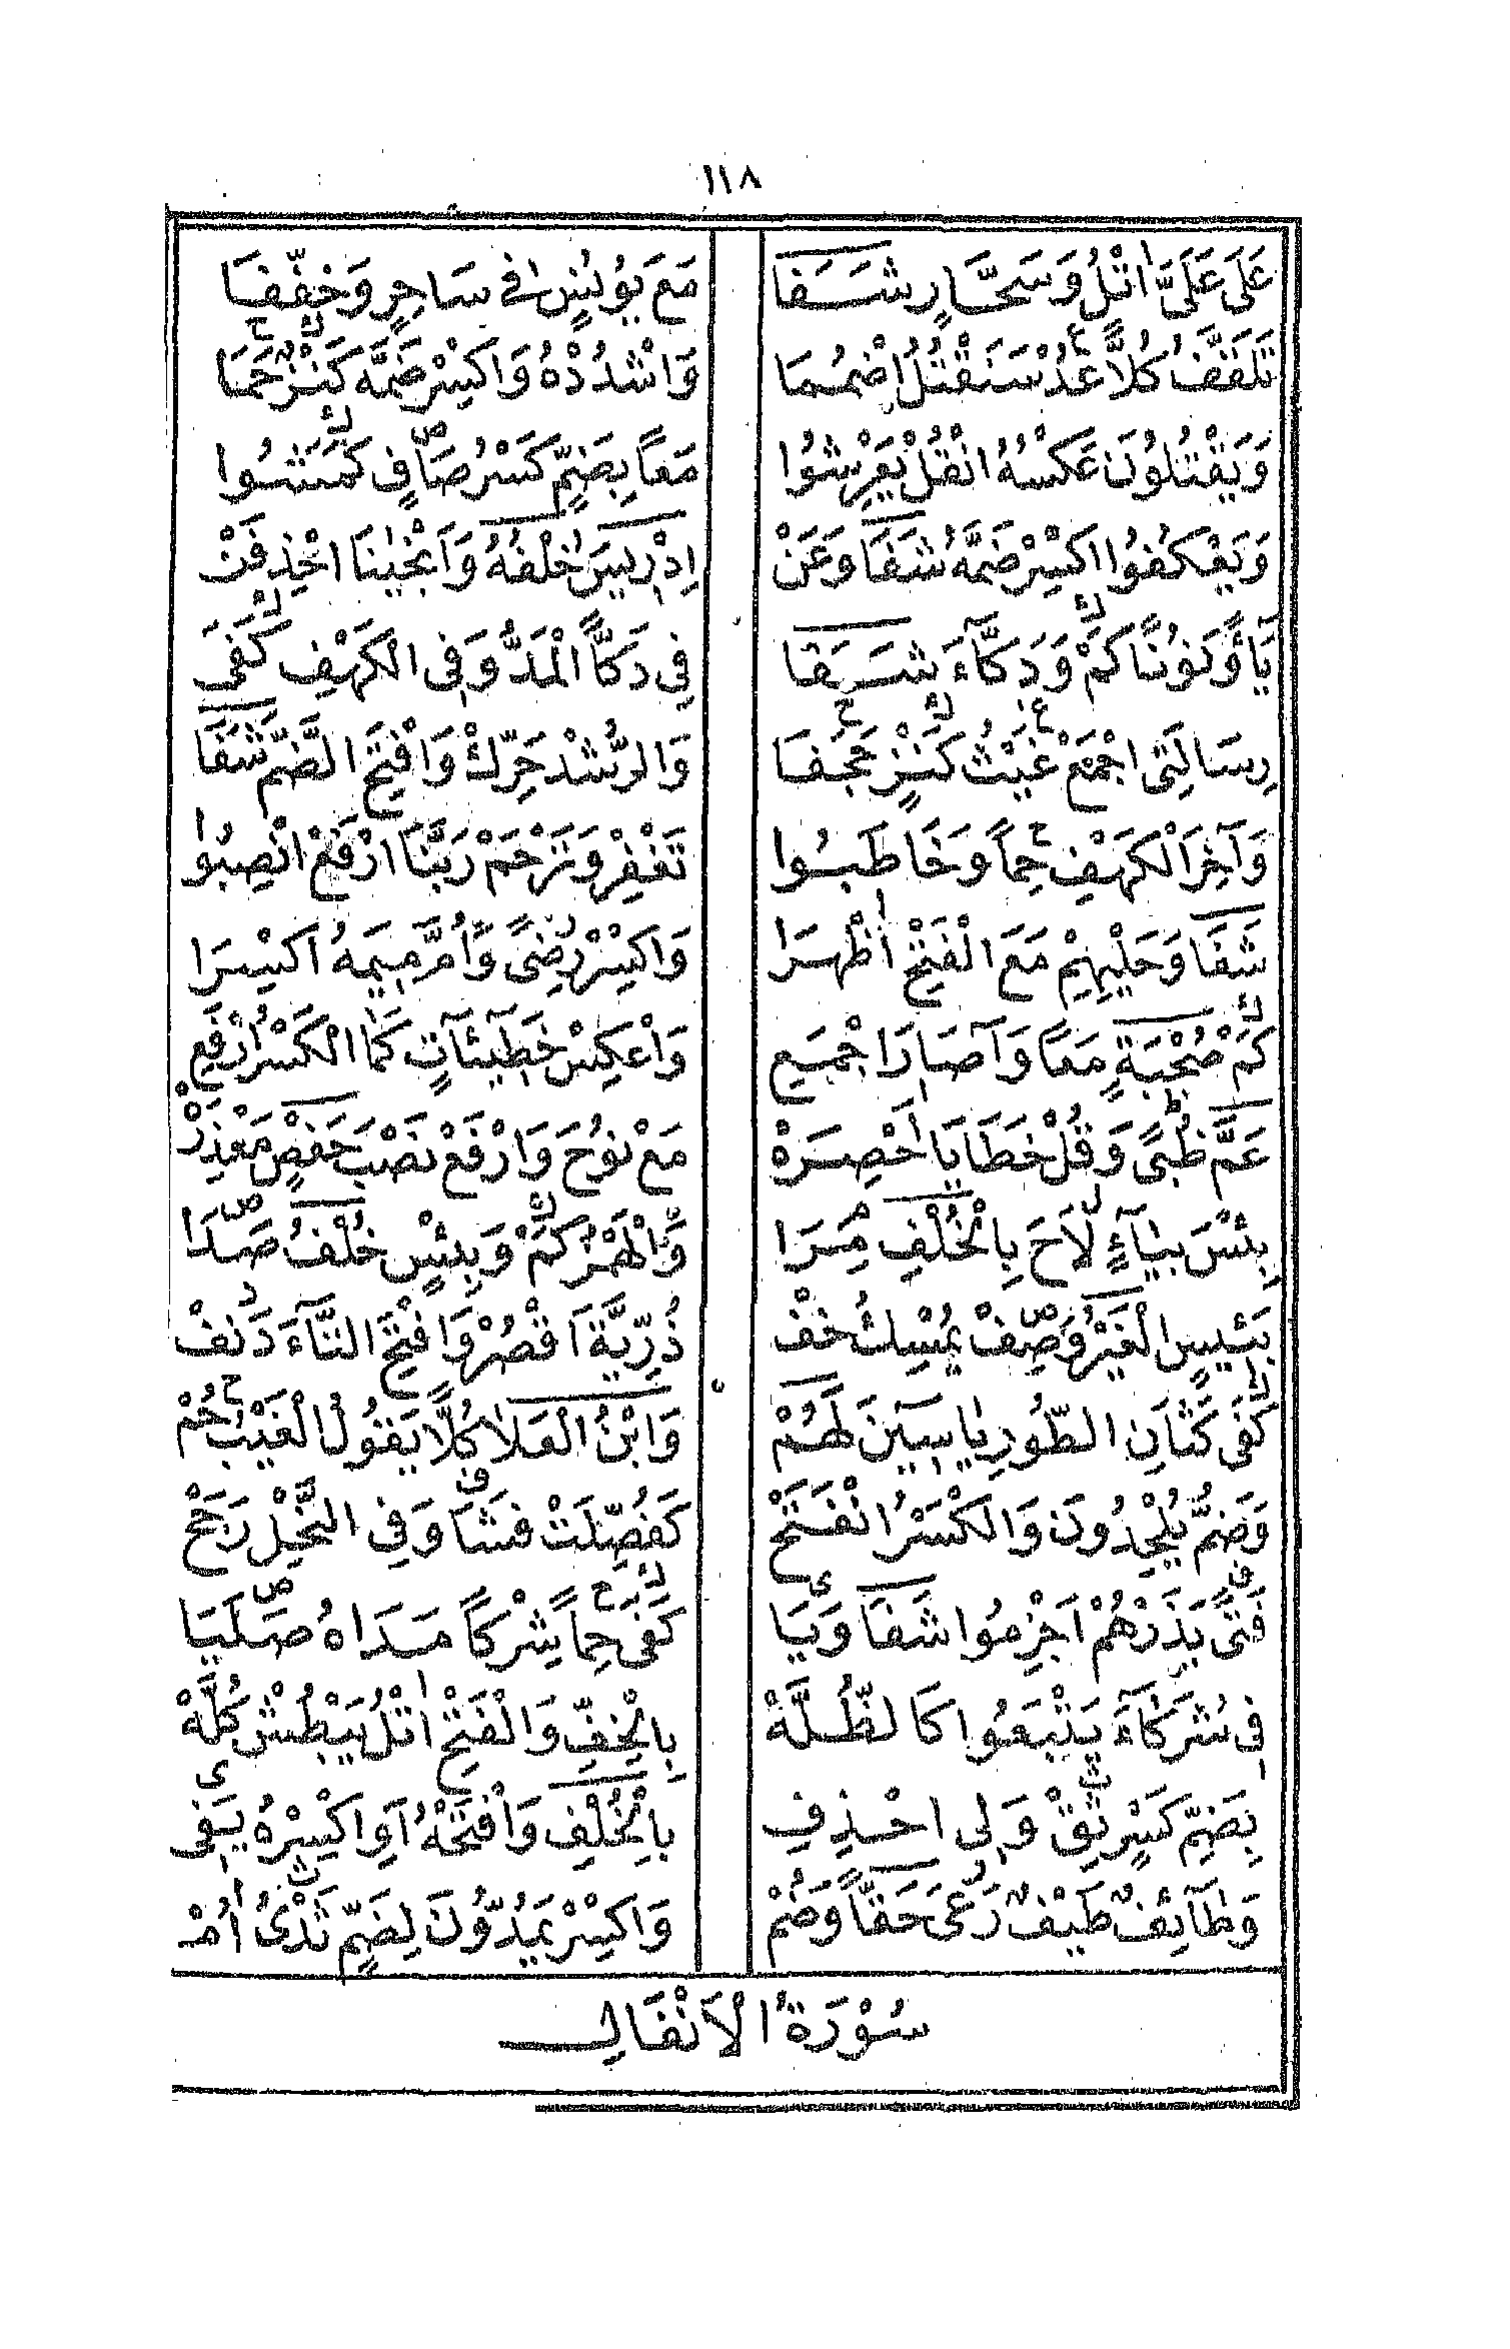 ١١٨
عَلَى عَلَيَّ اتْلُ وَسَحَّارٍ شَفَا مَعَ يُونُسٍ فِي سَاحِرٍ وَخَفِّفَا
تَلْقَفُ كُلًّا عُدْ سَنَقْتُلُ اضْمُمَا وَاشْدُدْهُ وَاكْسِرْ ضَمَّهُ كَنْزٌ حَمَا
وَيَقْتُلُونَ عَكْسُهُ انْقُلْ يَعْرِشُوا مَعًا بِضَمِّ كَسْرُ صَافٍ كَمَشُوا
وَيَعْكُفُوا اكْسِرْ ضَمَّهُ شَفَا وَعَنْ إِدْرِيسَ خُلْفُهُ وَأَنْجَيْنَا احْذِفَنْ
يَاءً وَنُونًا كَمْ وَدَكَّاءَ شَفَا فِي دَكًّا الْمَدُّ وَفِي الكَهْفِ كَفَى
رِسَالَتِي اجْمَعْ غَيْثُ كَنْزٍ حَجَفَا وَالرُّشْدَ حَرِّكْ وَافْتَحِ الضَّمَّ شَفَا
وَآخِرَ الْكَهْفِ حِمًا وَخَاطَبُوا تَغْفِرْ وَتَرْحَمْ رَبَّنَا ارْفَعْ انْصِبُوا
شَفَا وَحَلْيِهِمْ مَعَ الْفَتْحِ اظْهَرَا وَاكْسِرْ رِضًى وَأُمَّ مِيمَهُ اكْسِرَا
كَمْ صُحْبَةٍ مَعًا وَآصَارَ اجْمَعِ وَاعْكِسْ خَطِيئَاتٍ كَمَا الْكَسْرَ ارْفَعِ
عَمَّ ظُبًى وَقُلْ خَطَايَا احْصِرَهْ مَعْ نُوحَ وَارْفَعْ نَصْبَ حَفْصٍ مَعْذِرَهْ
بِئْسَ بِيَاءٍ لَاحَ بِالْخُلْفِ مِرَا وَالْهَمْزُ كَمْ وَبِيْئِسٍ خُلْفُ صَدَا
بَئِيسٍ الْغَيْرُ وَصِفْ يُمْسِكُ خَفْ ذُرِّيَّةَ اقْصُرْ وَافْتَحِ التَّاءَ دَنَفْ
كَفَى كَثَانِ الطُّورِ يَاسِينَ لَهُمْ وَابْنُ الْعَلَا كُلَّا يَقُولُ الْغَيْبُ حُمْ
وَضَمُّ يُلْحِدُونَ وَالكَسْرُ انْفَتَحْ كَفُصِّلَتْ فَشَا وَفِي النَّحْلِ رَجَحْ
فَتًى يَذَرْهُمْ اجْزِمُوا شَفَا وَيَا كَفَى حِمًا شِرْكًا مَدَاهُ صَلِيَا
فِي شُرَكَاءَ يَتْبَعُوا كَالظُّلَّهْ بِالْخِفِّ وَالْفَتْحِ اتْلُ يَبْطُشْ كُلَّهْ
بِضَمِّ كَسْرٍ ثِقْ وَلِي احْذِفِ بِالْخُلْفِ وَافْتَحْهُ أَوِ اكْسِرْهُ يَفِي
وَطَائِفٌ طَيْفٌ رَعَى حَقًّا وَضُمْ وَاكْسِرْ يَمُدُّونَ لِضَمِّ ثَدْيُ أُمْ
سُوْرَةُ الْاَنْفَالِ